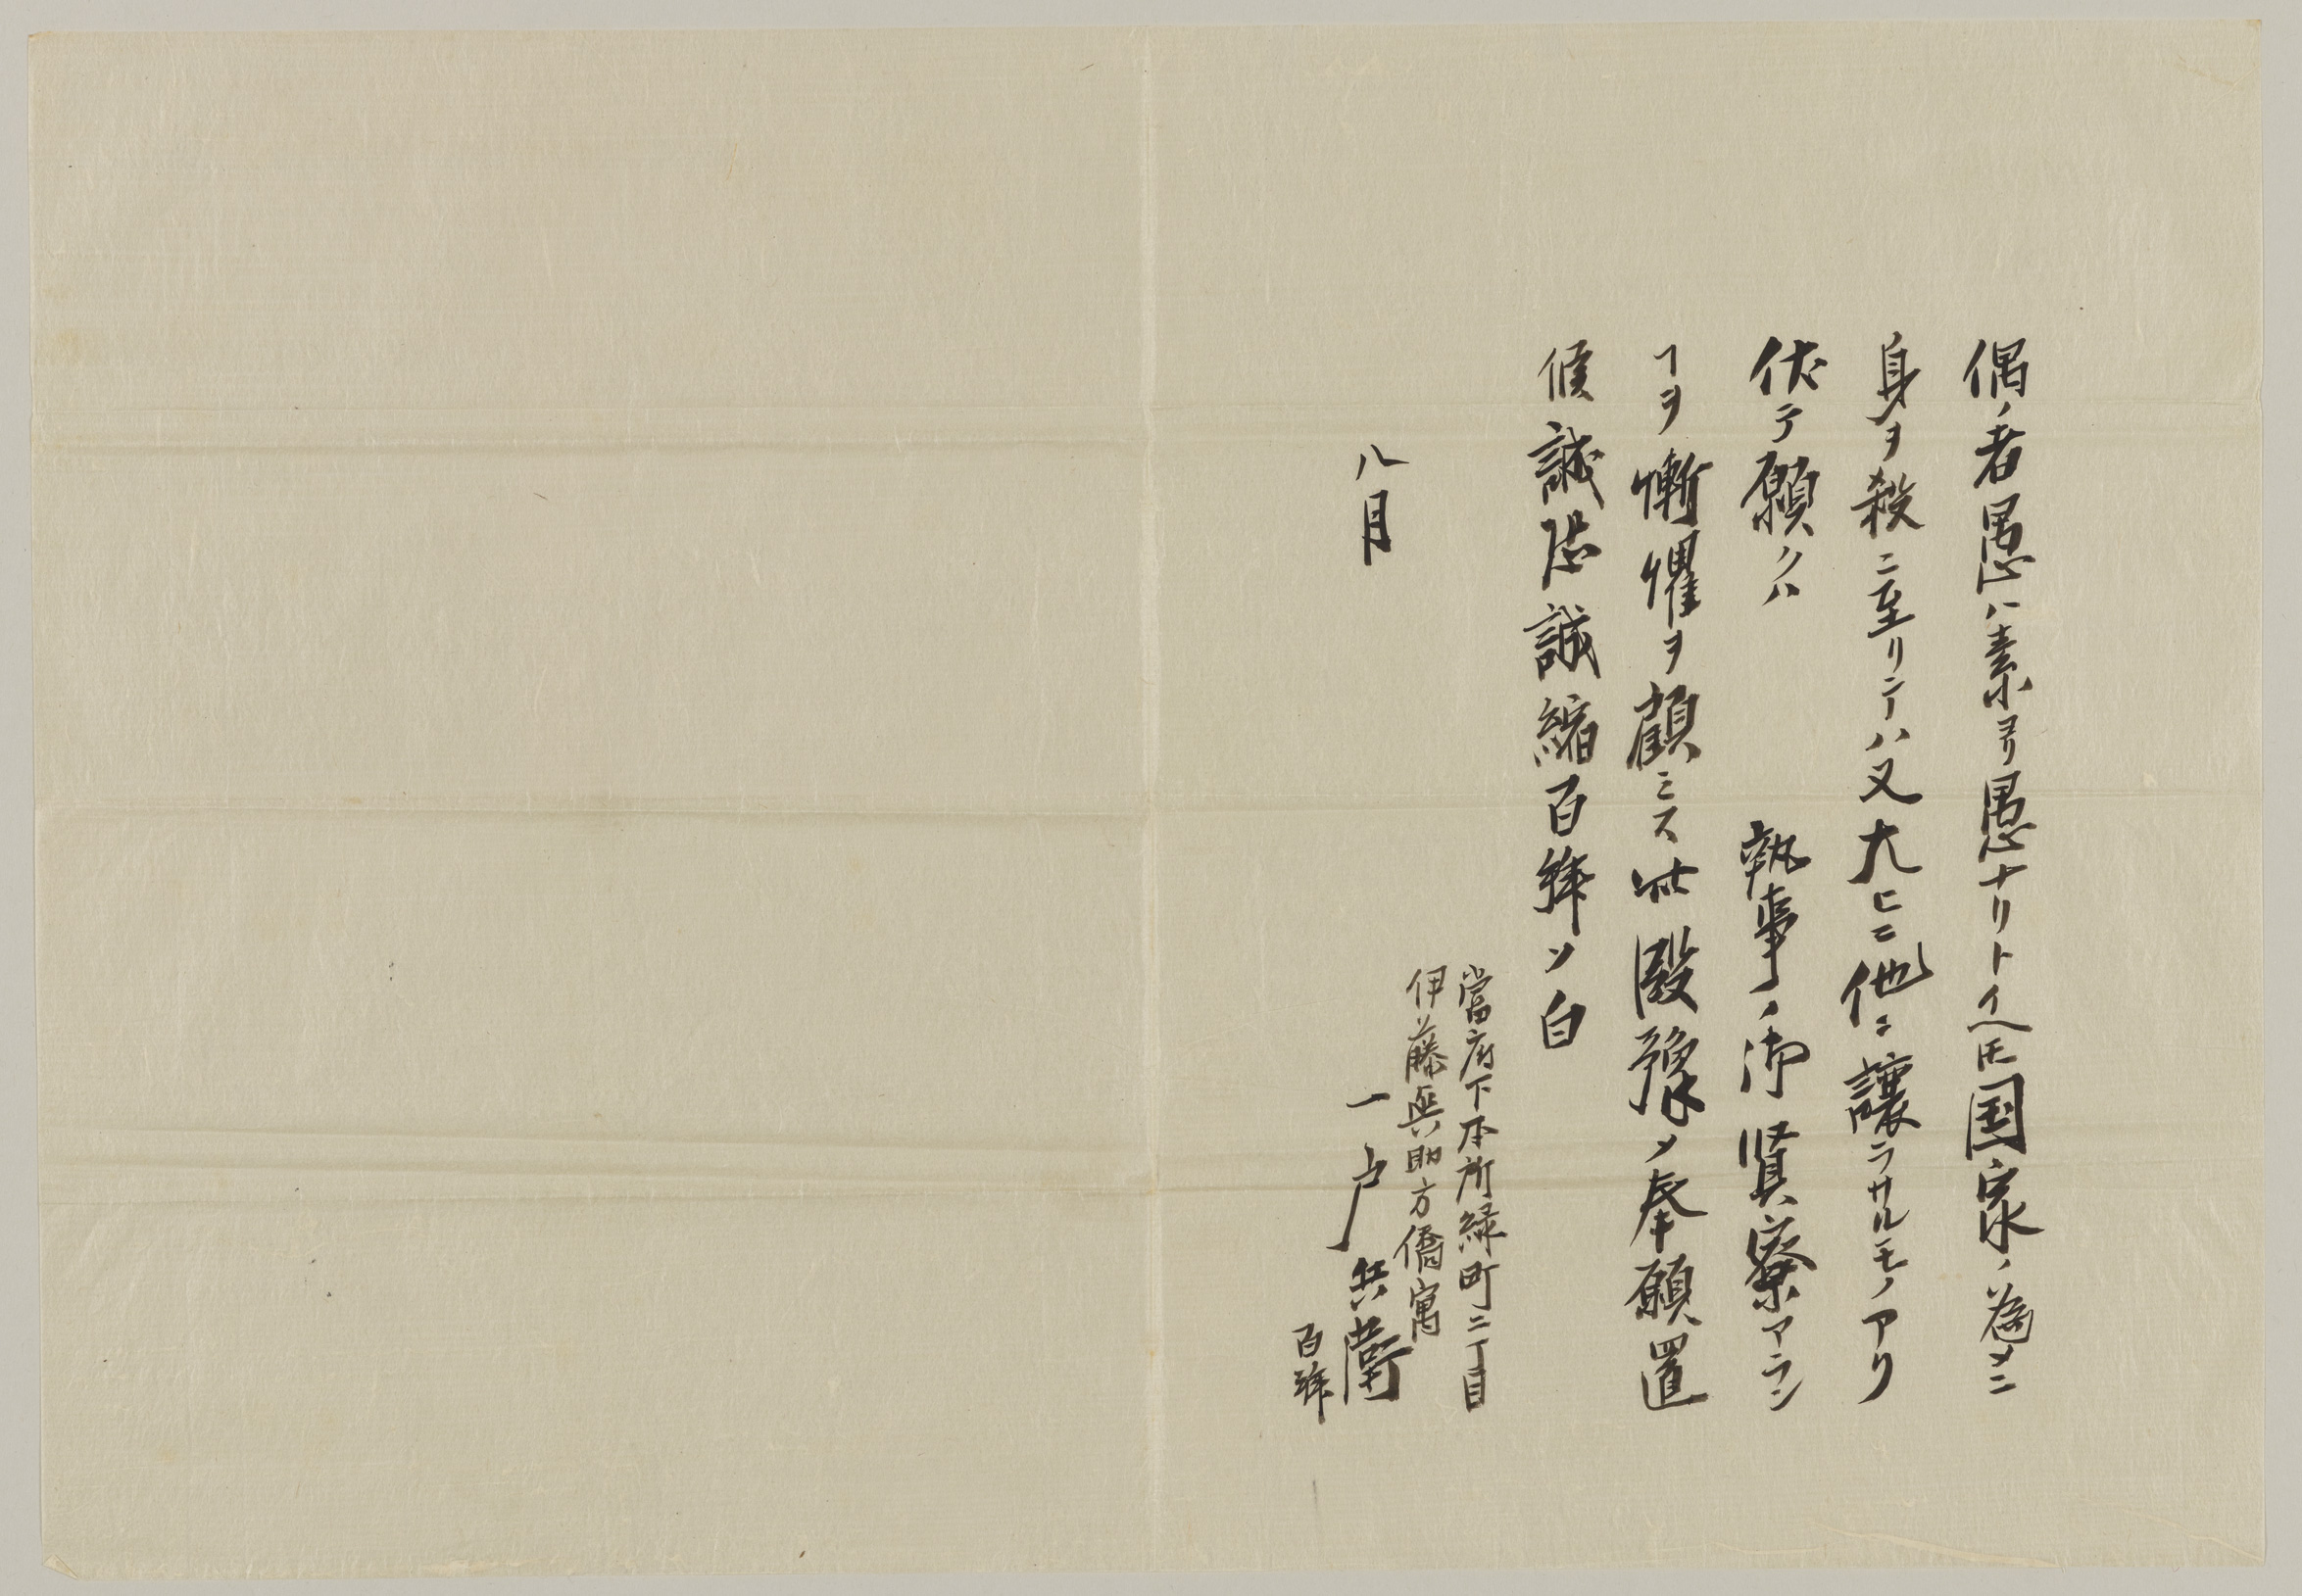 偶ノ者愚ハ素ヨリ愚ナリトイヘ𪜈国家ノ為メニ
身ヲ殺ニ至リテハ又大ヒニ他ニ譲ラサルモノアリ
伏テ願クハ　執事ノ御賢察アラン
ヿヲ慚懼ヲ顧ミス此段豫メ奉願置
候誠恐誠縮百拝シテ白
八月
當府下本所緑町二丁目
伊藤與助方僑寓
一戸兵衛
百拝